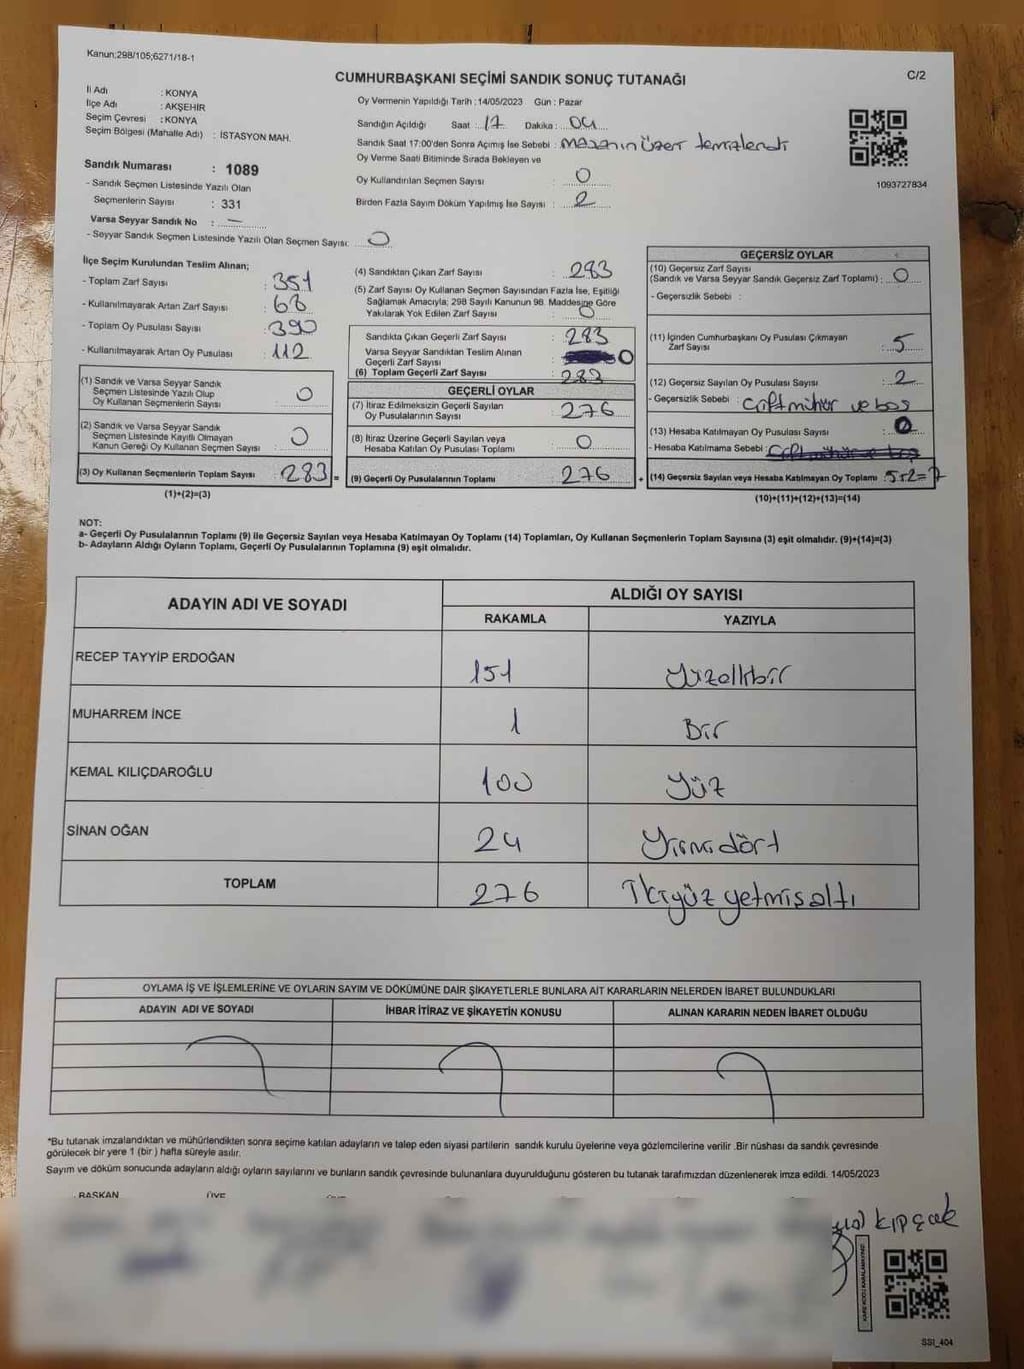 Kanun:298/105;6271/18-1
CUMHURBAŞKANI SEÇİMİ SANDIK SONUÇ TUTANAĞI
C/2
İl Adı : KONYA
İlçe Adı : AKŞEHİR
Seçim Çevresi : KONYA
Seçim Bölgesi (Mahalle Adı) : İSTASYON MAH.
Sandık Numarası : 1089
- Sandık Seçmen Listesinde Yazılı Olan
Seçmenlerin Sayısı : 331
Varsa Seyyar Sandık No : —
- Seyyar Sandık Seçmen Listesinde Yazılı Olan Seçmen Sayısı: 0
Oy Vermenin Yapıldığı Tarih : 14/05/2023 Gün : Pazar
Sandığın Açıldığı Saat : 17 Dakika : 04
Sandık Saat 17:00'den Sonra Açımış İse Sebebi : masanın üzeri temizlendi
Oy Verme Saati Bitiminde Sırada Bekleyen ve
Oy Kullandırılan Seçmen Sayısı : 0
Birden Fazla Sayım Döküm Yapılmış İse Sayısı : 2
1093727834
İlçe Seçim Kurulundan Teslim Alınan;
- Toplam Zarf Sayısı : 351
- Kullanılmayarak Artan Zarf Sayısı : 68
- Toplam Oy Pusulası Sayısı : 390
- Kullanılmayarak Artan Oy Pusulası : 112
(1) Sandık ve Varsa Seyyar Sandık
Seçmen Listesinde Yazılı Olup
Oy Kullanan Seçmenlerin Sayısı : 0
(2) Sandık ve Varsa Seyyar Sandık
Seçmen Listesinde Kayıtlı Olmayan
Kanun Gereği Oy Kullanan Seçmen Sayısı : 0
(3) Oy Kullanan Seçmenlerin Toplam Sayısı : 283 =
(1)+(2)=(3)
(4) Sandıktan Çıkan Zarf Sayısı : 283
(5) Zarf Sayısı Oy Kullanan Seçmen Sayısından Fazla İse, Eşitliği
Sağlamak Amacıyla; 298 Sayılı Kanunun 98. Maddesine Göre
Yakılarak Yok Edilen Zarf Sayısı : 0
Sandıkta Çıkan Geçerli Zarf Sayısı : 283
Varsa Seyyar Sandıktan Teslim Alınan
Geçerli Zarf Sayısı : 0
(6) Toplam Geçerli Zarf Sayısı : 283
GEÇERLİ OYLAR
(7) İtiraz Edilmeksizin Geçerli Sayılan
Oy Pusulalarının Sayısı : 276
(8) İtiraz Üzerine Geçerli Sayılan veya
Hesaba Katılan Oy Pusulası Toplamı : 0
(9) Geçerli Oy Pusulalarının Toplamı : 276 +
GEÇERSİZ OYLAR
(10) Geçersiz Zarf Sayısı
(Sandık ve Varsa Seyyar Sandık Geçersiz Zarf Toplamı) : 0
- Geçersizlik Sebebi :
(11) İçinden Cumhurbaşkanı Oy Pusulası Çıkmayan
Zarf Sayısı : 5
(12) Geçersiz Sayılan Oy Pusulası Sayısı : 2
- Geçersizlik Sebebi : Çift mühür ve boş
(13) Hesaba Katılmayan Oy Pusulası Sayısı : 0
- Hesaba Katılmama Sebebi : Çift mühür ve boş
(14) Geçersiz Sayılan veya Hesaba Katılmayan Oy Toplamı : 5+2=7
(10)+(11)+(12)+(13)=(14)
NOT:
a- Geçerli Oy Pusulalarının Toplamı (9) ile Geçersiz Sayılan veya Hesaba Katılmayan Oy Toplamı (14) Toplamları, Oy Kullanan Seçmenlerin Toplam Sayısına (3) eşit olmalıdır. (9)+(14)=(3)
b- Adayların Aldığı Oyların Toplamı, Geçerli Oy Pusulalarının Toplamına (9) eşit olmalıdır.
ADAYIN ADI VE SOYADI
ALDIĞI OY SAYISI
RAKAMLA YAZIYLA
RECEP TAYYİP ERDOĞAN 151 Yüzellibir
MUHARREM İNCE 1 Bir
KEMAL KILIÇDAROĞLU 100 Yüz
SİNAN OĞAN 24 Yirmidört
TOPLAM 276 İkiyüz yetmişaltı
OYLAMA İŞ VE İŞLEMLERİNE VE OYLARIN SAYIM VE DÖKÜMÜNE DAİR ŞİKAYETLERLE BUNLARA AİT KARARLARIN NELERDEN İBARET BULUNDUKLARI
ADAYIN ADI VE SOYADI İHBAR İTİRAZ VE ŞİKAYETİN KONUSU ALINAN KARARIN NEDEN İBARET OLDUĞU
*Bu tutanak imzalandıktan ve mühürlendikten sonra seçime katılan adayların ve talep eden siyasi partilerin sandık kurulu üyelerine veya gözlemcilerine verilir .Bir nüshası da sandık çevresinde
görülecek bir yere 1 (bir ) hafta süreyle asılır.
Sayım ve döküm sonucunda adayların aldığı oyların sayılarını ve bunların sandık çevresinde bulunanlara duyurulduğunu gösteren bu tutanak tarafımızdan düzenlenerek imza edildi. 14/05/2023
BAŞKAN ÜYE
Kıpçak
KARE KODU KARALAMAYINIZ!
SSt_404